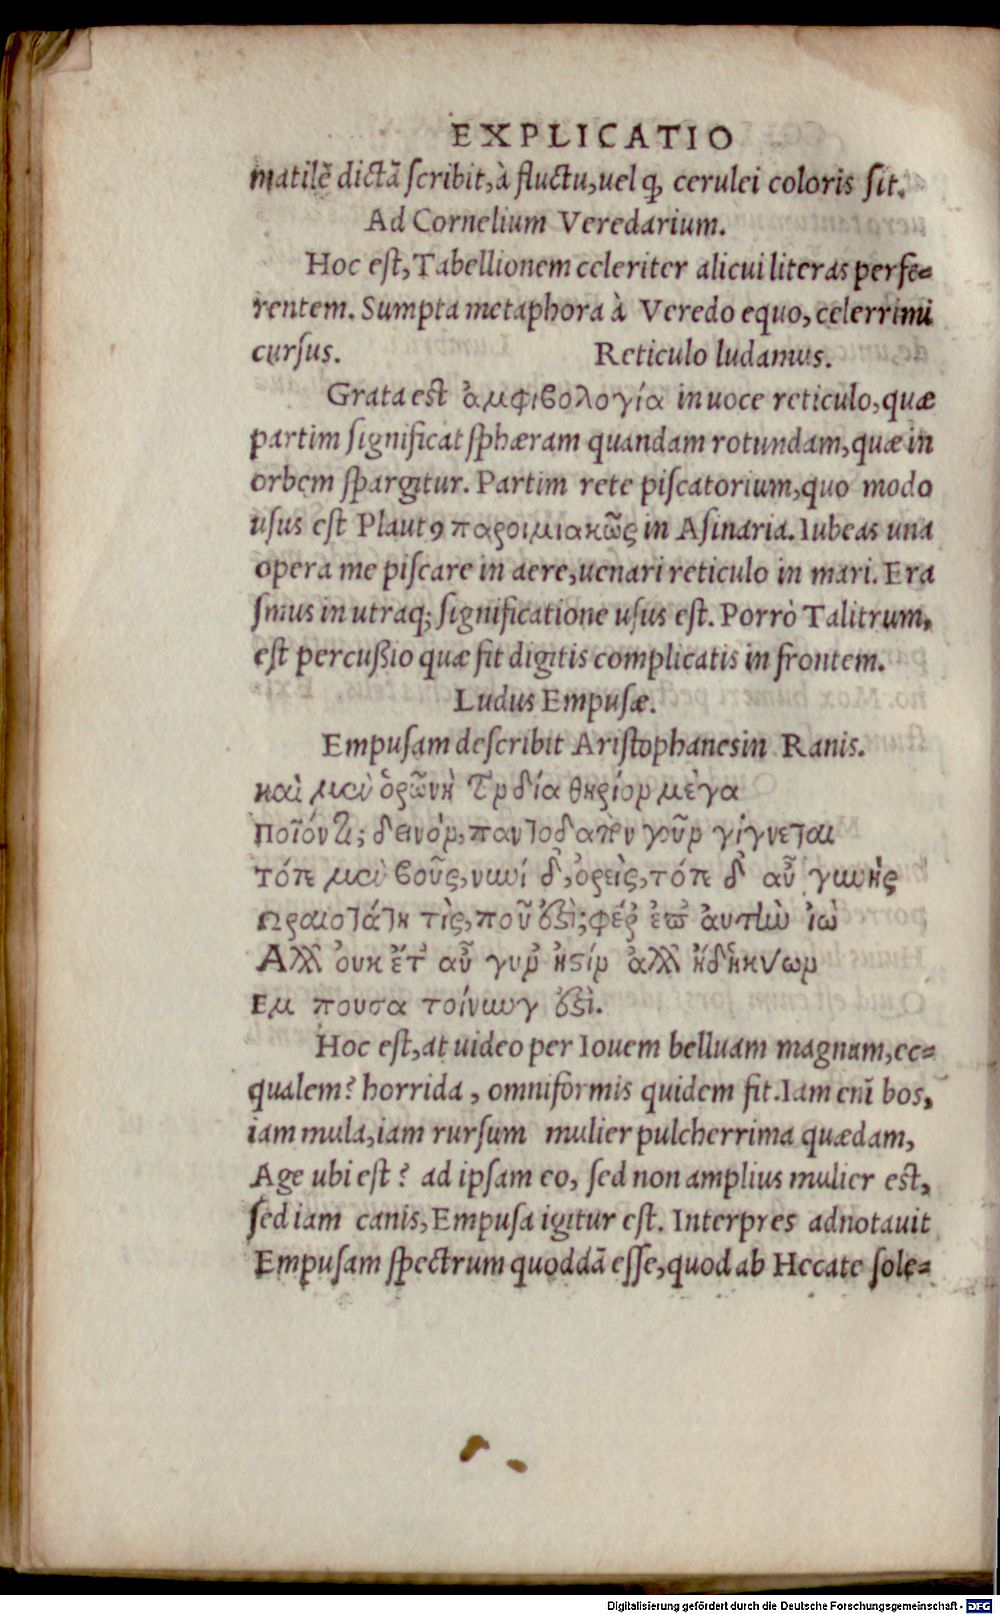 EXPLICATIO
matilẽ dictã scribit, à fluctu, uel ꝙ cerulei coloris sit.
Ad Cornelium Veredarium.
Hoc est, Tabellionem celeriter alicui literas perfe=
rentem. Sumpta metaphora à Veredo equo, celerrimi
cursus. Reticulo ludamus.
Grata est ἀμφιβολογία in uoce reticulo, quæ
partim significat sphæram quandam rotundam, quæ in
orbem spargitur. Partim rete piscatorium, quo modo
usus est Plautꝰ παροιμιακῶς in Asinaria. Iubeas una
opera me piscare in aere, uenari reticulo in mari. Era
smus in utraq; significatione usus est. Porrò Talitrum,
est percußio quæ fit digitis complicatis in frontem.
Ludus Empusæ.
Empusam describit Aristophanes in Ranis.
καὶ μὴν ὁρῶνὴ τὸν δία θηρίον μέγα
ποῖόν τι; δεινόν, παντοδαπὸν γοῦν γίγνεται
τότε μὲν βοῦς, νυνί δ', ὀρεὶς, τότε δ' αὖ γυνὴς
Ωραιοτάτη τὶς, ποῦ ἐστὶ; φέρ ἐπ' ἀυτὴν ἰὼ
Αλλ' ὀυκ ἔτ' αὖ γυν ἠστίν ἀλλ' ἤδη κνων
Εμ πουσα τοίνυνγ ἐστὶ.
Hoc est, at uideo per Iouem belluam magnam, ec=
qualem? horrida, omniformis quidem fit. Iam enĩ bos,
iam mula, iam rursum mulier pulcherrima quædam,
Age ubi est? ad ipsam eo, sed non amplius mulier est,
sed iam canis, Empusa igitur est. Interpres adnotauit
Empusam spectrum quoddã esse, quod ab Hecate sole=
Digitalisierung gefördert durch die Deutsche Forschungsgemeinschaft - DFG